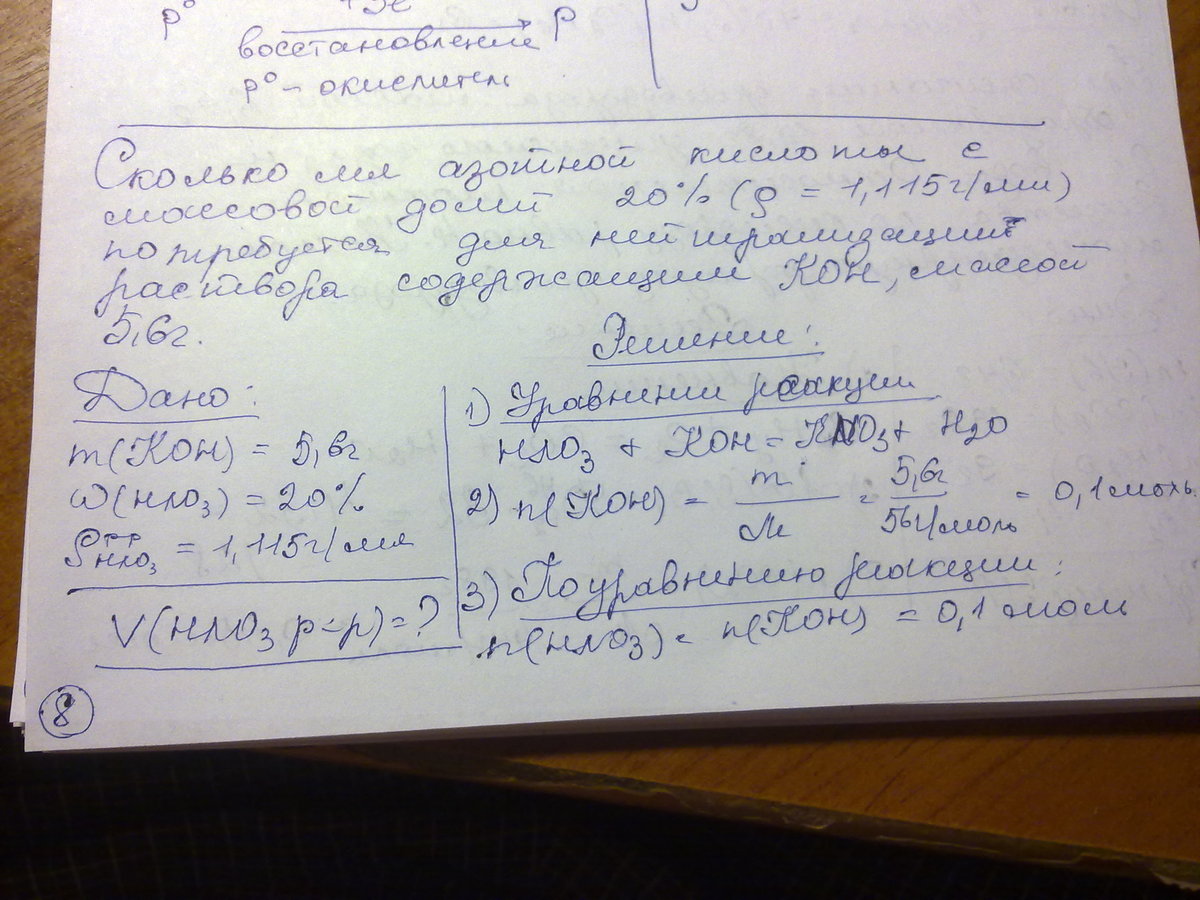 p⁰
восстановление p
p⁰ - окислитель
Сколько мл азотной кислоты с
массовой долей 20% (ρ = 1,115г/мл)
потребуется для нейтрализации
раствора содержащим KOH, массой
5,6г.
Решение:
Дано:
m(KOH) = 5,6г
ω(HNO₃) = 20%
ρ р-р HNO₃ = 1,115г/мл
V(HNO₃ р-р) = ?
1) Уравнении реакции
HNO₃ + KOH = KNO₃ + H₂O
2) n(KOH) = m/M = 5,6г/56г/моль = 0,1 моль.
3) По уравнению реакции:
n(HNO₃) = n(KOH) = 0,1 моль
8